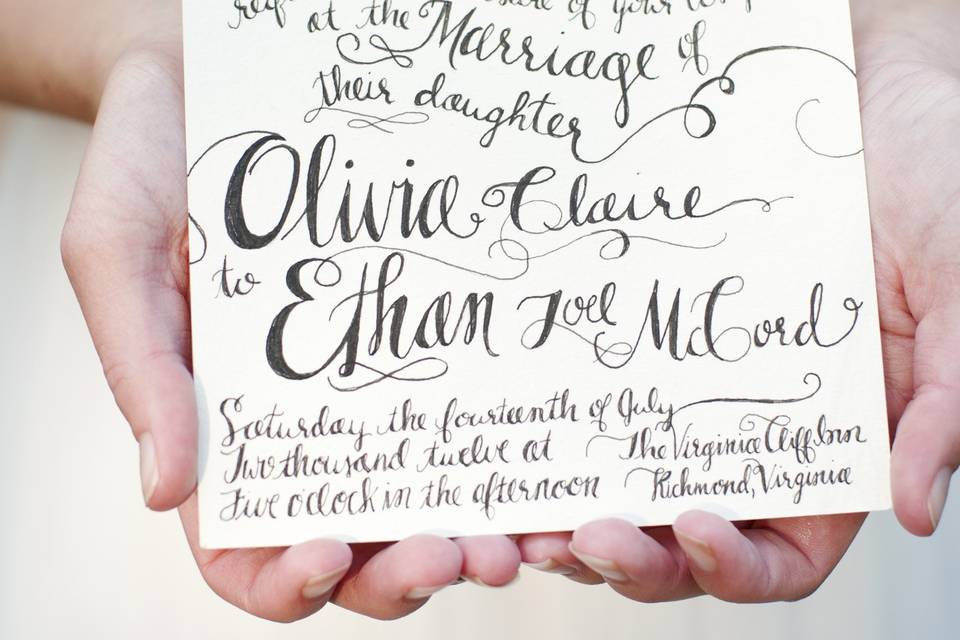 of your
at the Marriage of
their daughter
Olivia Claire
to Ethan Joel McCord
Saturday the fourteenth of July
Two thousand twelve at
Five o'clock in the afternoon
The Virginia Cliff Inn
Richmond, Virginia